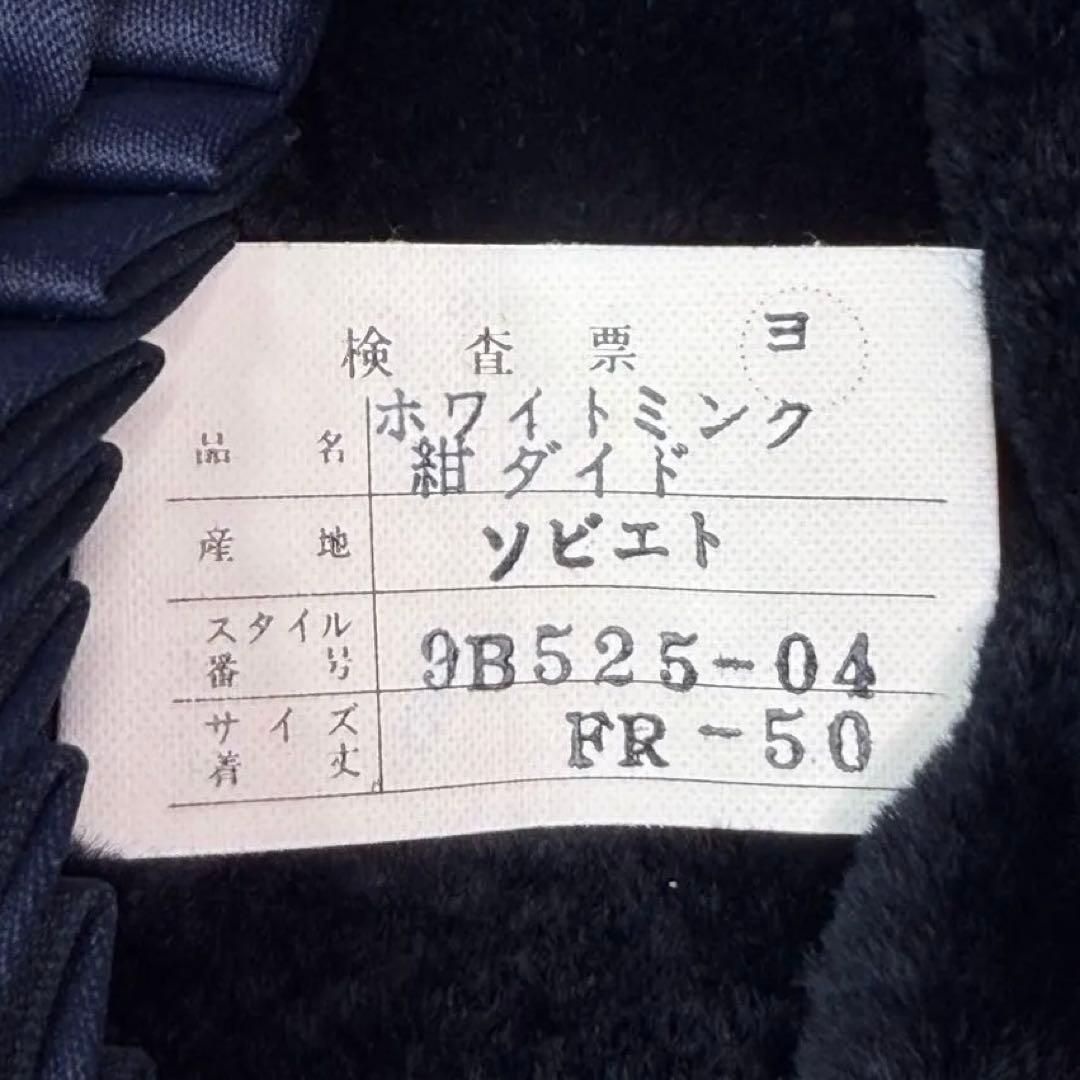 検査票 ヨ
品名 ホワイトミンク
紺ダイド
産地 ソビエト
スタイル
番号 9B525-04
サイズ FR-50
着丈